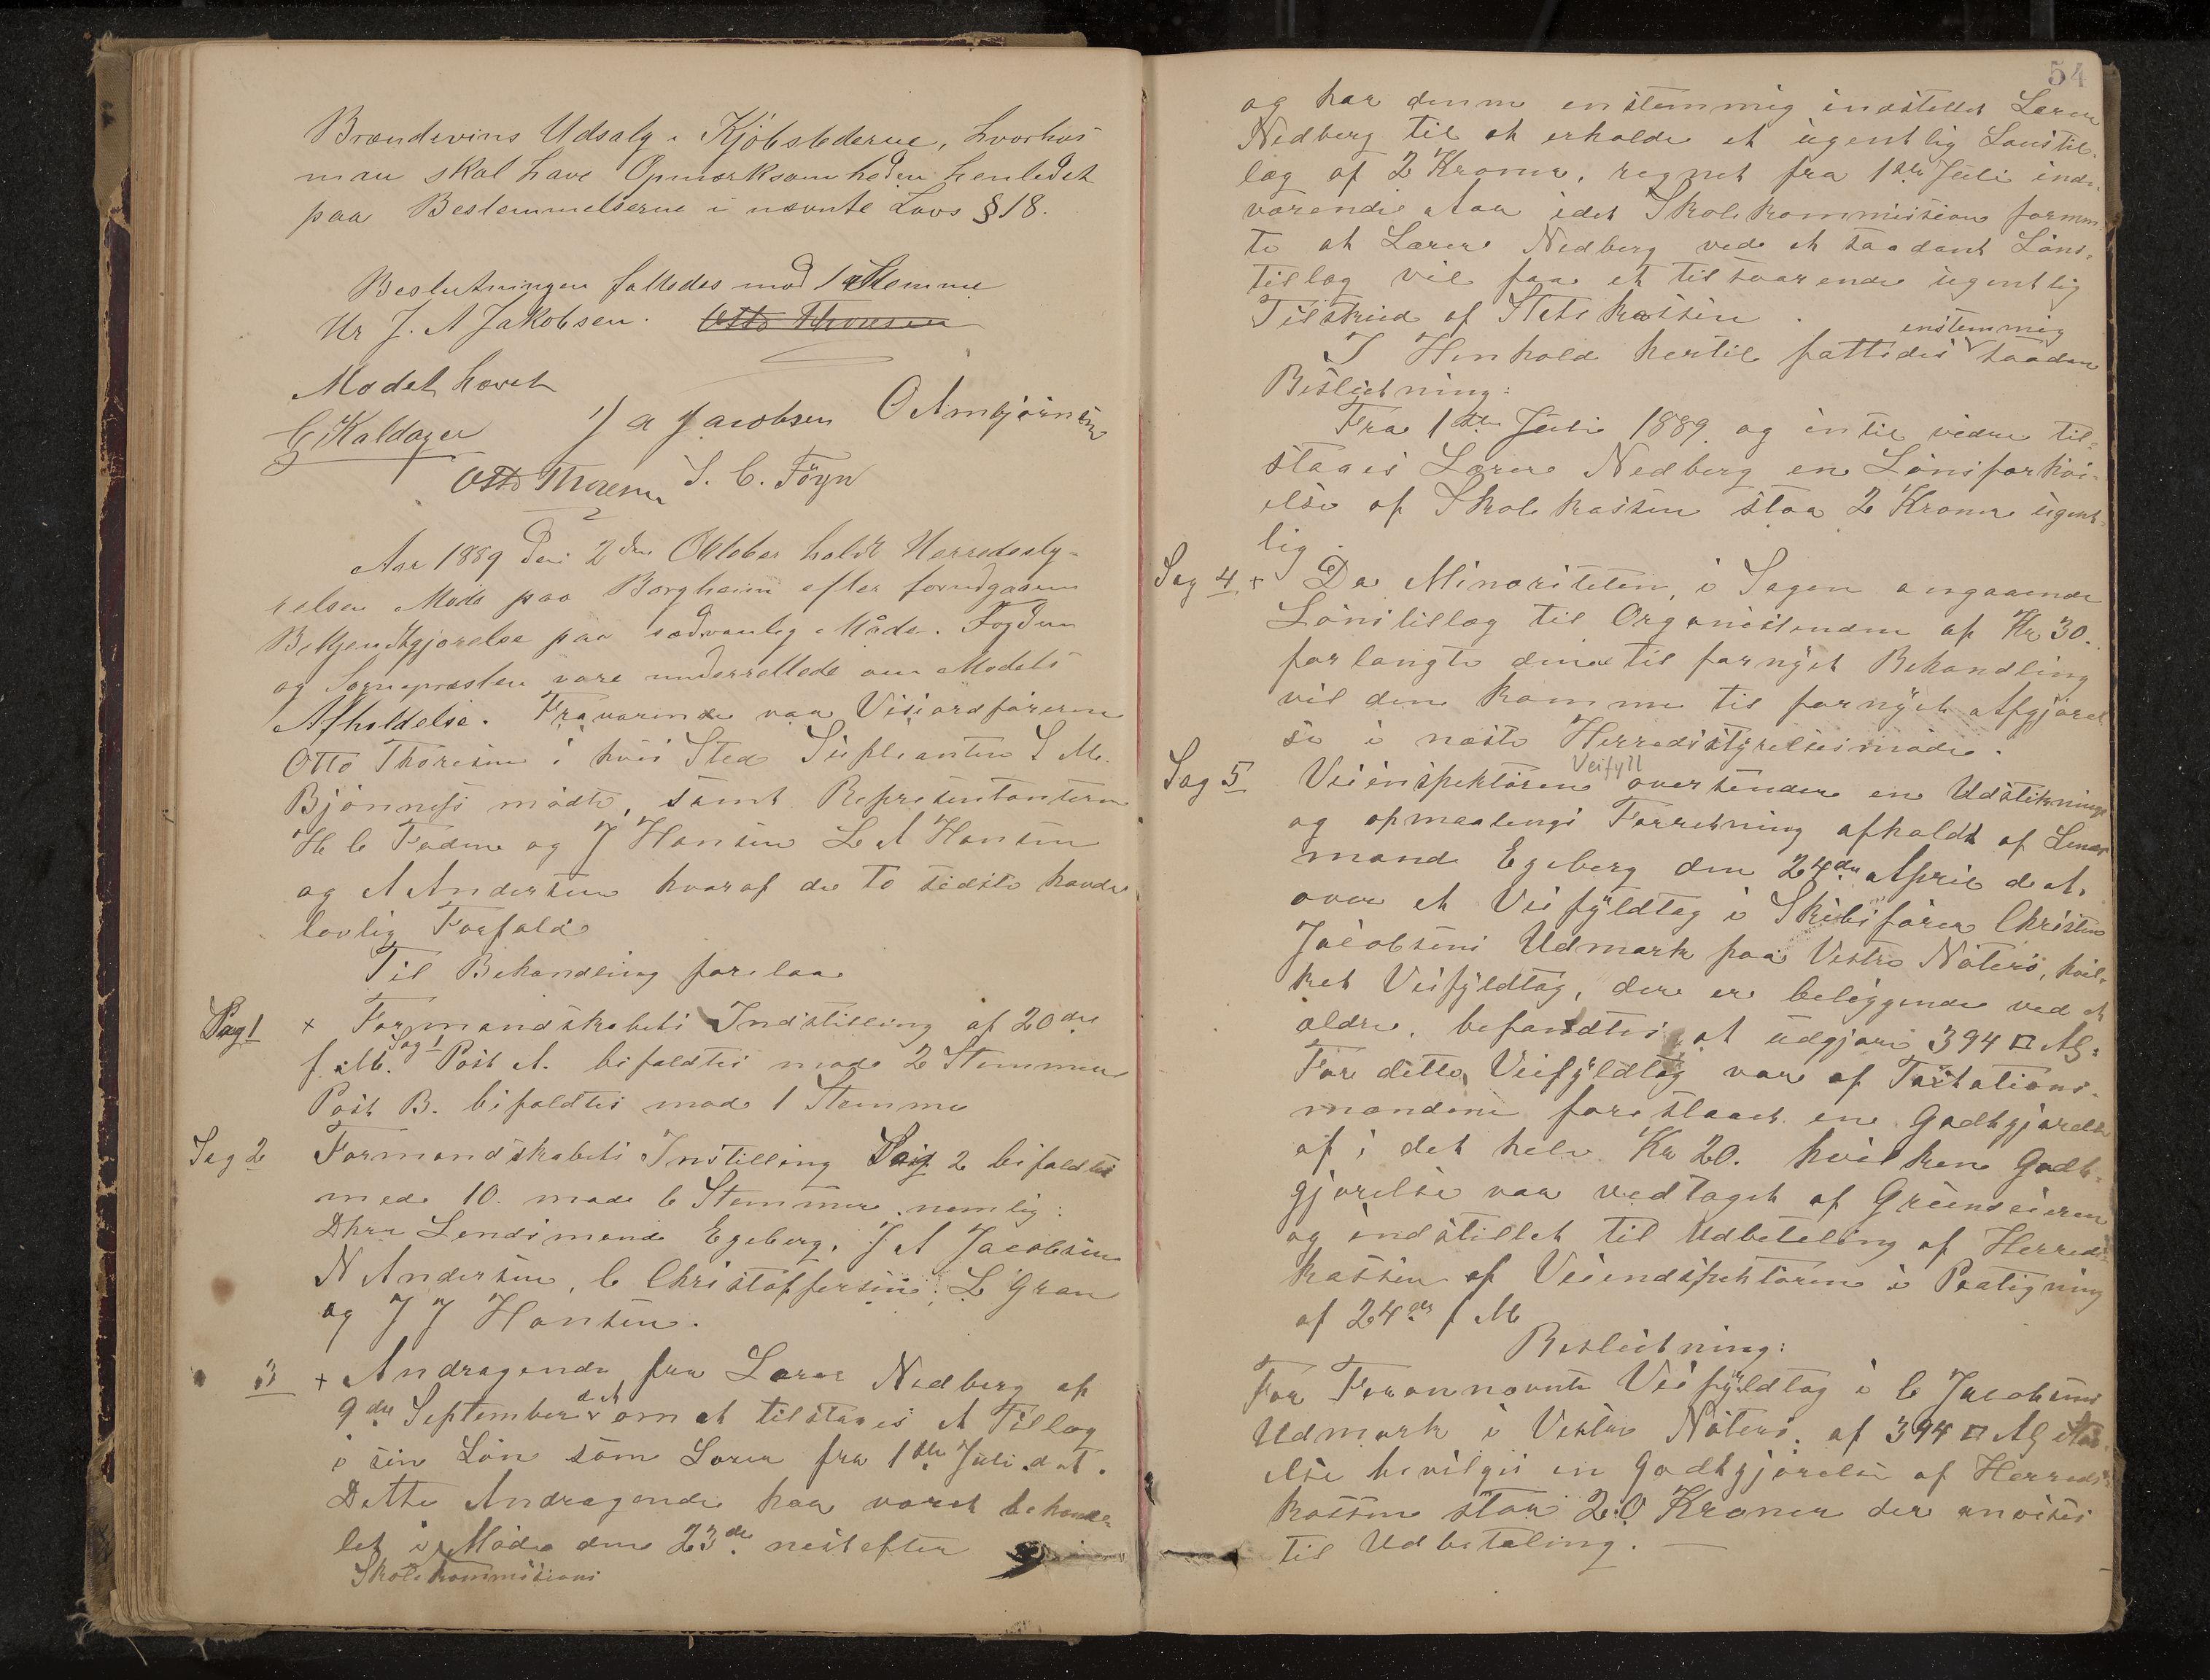 Brændevins Udsalg i Kjöbstederne, hvorhos
man skal have Opmærksomheden henledet
paa Bestemmelserne i nævnte Lovs § 18.
Beslutningen fattedes mod 1 Stemme
Hr J. A Jakobsen. Otto Thoresen
Mødet hævet
C Kaldager J A Jacobsen O Ambjörnsen
Otto Thoresen S. C. Föyn
Aar 1889 den 2den Oktober holdt Herredssty-
relsen Møde paa Borgheim efter forudgaaende
Bekjendtgjørelse paa sædvanlig Måde. Fogden
og Sognepræsten vare underrettede om Mødets
Afholdelse. Fraværende var Viseordføreren
Otto Thoresen i hvis Sted Supleanten S M.
Bjönness mödte, samt Repræsentanterne
H C Fadum og J Hansen L A Hansen
og A Andersen hvoraf de to sidste havde
lovlig Forfald
Til Behandling forelaa
Sag 1 x Formandskabets Indstilling af 20de
f. M. Sag 1 Post A. bifaldtes mod 2 Stemmer
Post B. bifaldtes mod 1 Stemme
Sag 2 Formandskabets Instilling Sag 2 bifaldtes
med 10 mod 6 Stemmer nemlig:
Dhrr Lensmand Egeberg, J A Jacobsen
N Andersen, C Christoffersen, L Gran
og J J Hansen.
3 + Andragende fra Lærer Nedberg af
9de September d A om at tilstaaes et Tillæg
i sin Lön som Lærer fra 1ste Juli d. A.
Dette Andragende har været behand-
let i Skolekommissions Möde den 23de nestefter
54
og har denne enstemmig indstillet Lærer
Nedberg til at erholde et ugentlig Lønstil-
læg af 2 Kroner, regnet fra 1ste Juli inde-
værende Aar idet Skolekommissionen formen-
te at Lærer Nedberg ved et saadant Löns-
tillæg vil faa et tilsvarende ugentlig
Tilskud af Statskassen.
I Henhold hertil fattedes enstemmig saaden
Beslutning:
Fra 1ste Juli 1889 og intil videre til-
staaes Lærer Nedberg en Lönsforhöi-
else af Skolekassen stor 2 Kroner ugent-
lig.
Sag 4 + Da Minoriteten, i Sagen angaaende
Lönstillæg til Organistenden af Kr 30.
forlangte denne til fornyet Behandling
vil den komme til fornyet Afgjörel
se i næste Herredsstyrelsesmöde.
Sag 5 Veiinspektören oversender en Udstiknings
Veifyll
og opmaalings Forretning afholdt af Lens
mand Egeberg den 24de April d. A.
over et Veifyldtag i Skibsförer Christen
Jacobsens Udmark paa Vestre Nöterö, hvil-
ket Veifyldtag, der er beliggende ved et
ældre, befandtes at udgjøre 394 □ Al.
For dette Veifyldtag var af Taxtations-
mændene foreslaaet en Godtgjørelse
af i det hele Kr 20. hvilken Godt-
gjørelse var vedtaget af Grundeieren
og indstillet til Udbetaling af Herreds-
kassen af Veiendspektören i Paategning
af 24de f M
Beslutning:
For Forannævnte Veifyldtag i C Jacobsens
Udmark i Vestre Nöterö, af 394 □ Al Stör-
else bevilges en Godtgjörelse af Herreds-
kassen stor 20 Kroner der anvises
til Udbetaling.